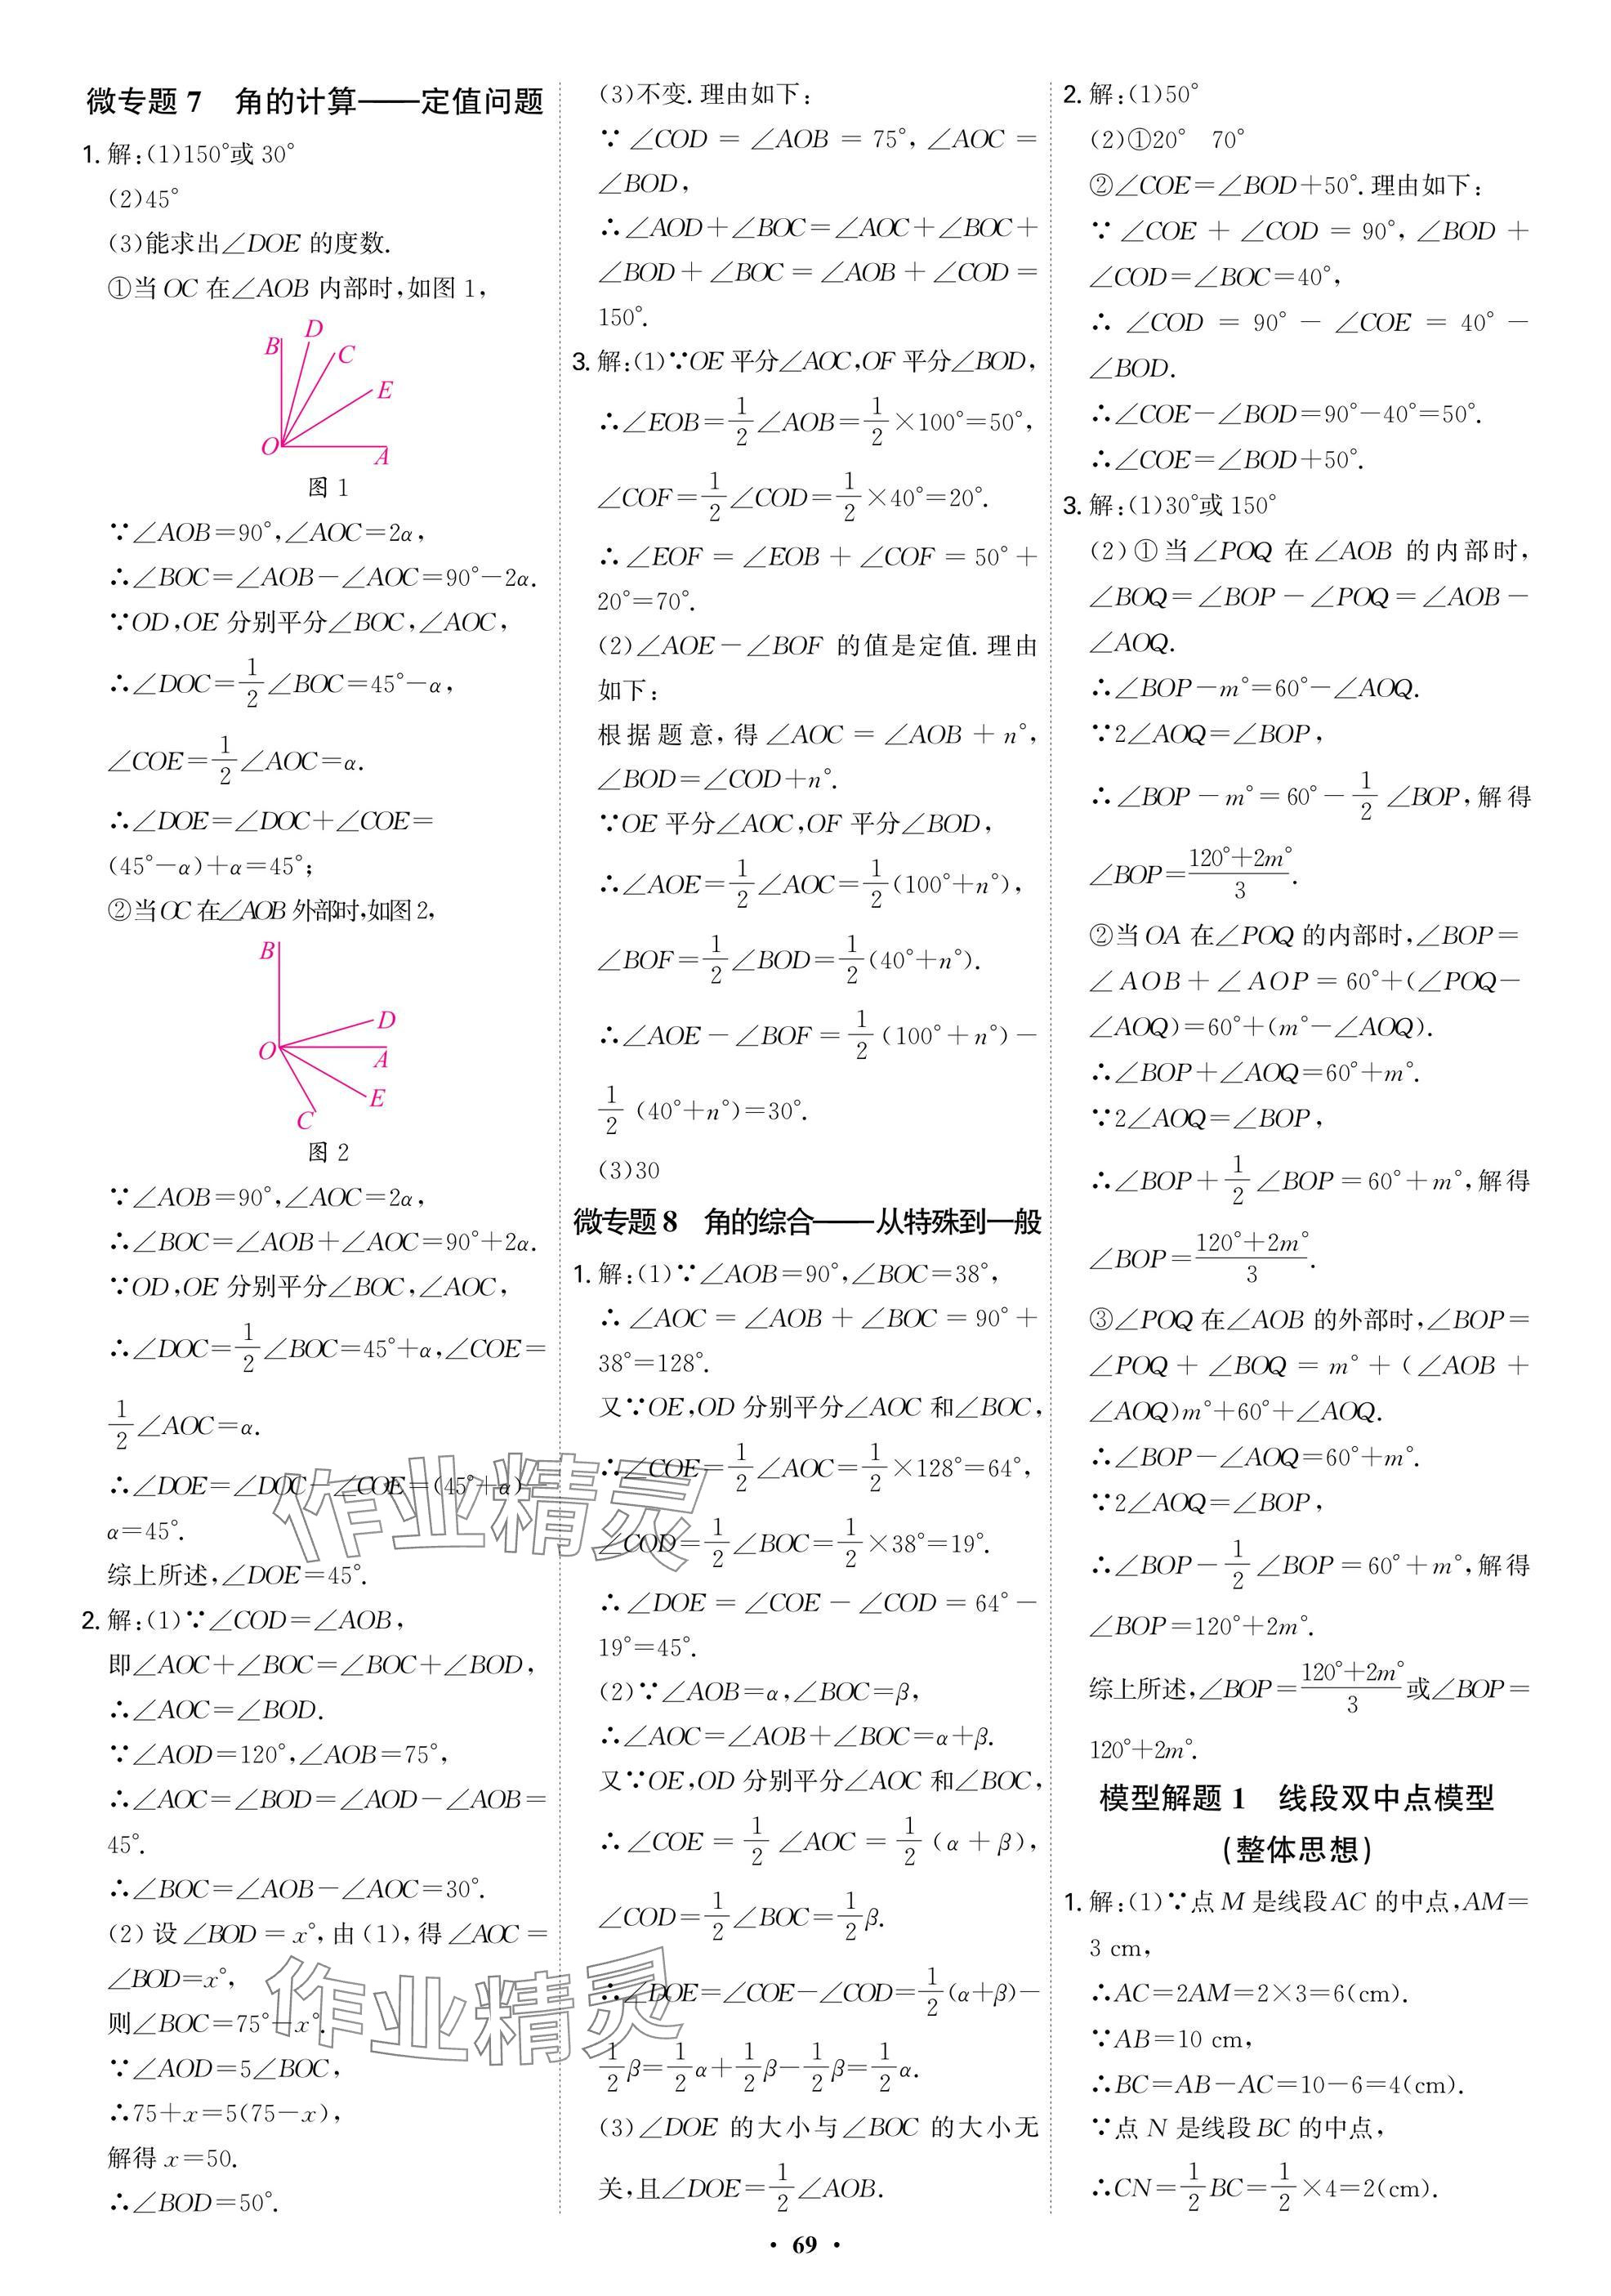 微专题 7 角的计算——定值问题
1. 解:(1)150°或 30°
(2)45°
(3)能求出∠DOE 的度数.
①当 OC 在∠AOB 内部时,如图 1,
B
D
C
E
O
A
图 1
∵∠AOB=90°,∠AOC=2α,
∴∠BOC=∠AOB-∠AOC=90°-2α.
∵OD,OE 分别平分∠BOC,∠AOC,
∴∠DOC=1/2∠BOC=45°-α,
∠COE=1/2∠AOC=α.
∴∠DOE=∠DOC+∠COE=
(45°-α)+α=45°;
②当OC 在∠AOB 外部时,如图2,
B
D
O
A
E
C
图 2
∵∠AOB=90°,∠AOC=2α,
∴∠BOC=∠AOB+∠AOC=90°+2α.
∵OD,OE 分别平分∠BOC,∠AOC,
∴∠DOC=1/2∠BOC=45°+α,∠COE=
1/2∠AOC=α.
∴∠DOE=∠DOC-∠COE=(45°+α)-
α=45°.
综上所述,∠DOE=45°.
2. 解:(1)∵∠COD=∠AOB,
即∠AOC+∠BOC=∠BOC+∠BOD,
∴∠AOC=∠BOD.
∵∠AOD=120°,∠AOB=75°,
∴∠AOC=∠BOD=∠AOD-∠AOB=
45°.
∴∠BOC=∠AOB-∠AOC=30°.
(2) 设∠BOD=x°,由(1),得∠AOC=
∠BOD=x°,
则∠BOC=75°-x°.
∵∠AOD=5∠BOC,
∴75+x=5(75-x),
解得 x=50.
∴∠BOD=50°.
(3)不变.理由如下:
∵∠COD=∠AOB=75°,∠AOC=
∠BOD,
∴∠AOD+∠BOC=∠AOC+∠BOC+
∠BOD+∠BOC=∠AOB+∠COD=
150°.
3. 解:(1)∵OE 平分∠AOC,OF 平分∠BOD,
∴∠EOB=1/2∠AOB=1/2×100°=50°,
∠COF=1/2∠COD=1/2×40°=20°.
∴∠EOF=∠EOB+∠COF=50°+
20°=70°.
(2)∠AOE-∠BOF 的值是定值.理由
如下:
根据题意,得∠AOC=∠AOB+n°,
∠BOD=∠COD+n°.
∵OE 平分∠AOC,OF 平分∠BOD,
∴∠AOE=1/2∠AOC=1/2(100°+n°),
∠BOF=1/2∠BOD=1/2(40°+n°).
∴∠AOE-∠BOF=1/2(100°+n°)-
1/2(40°+n°)=30°.
(3)30
微专题 8 角的综合——从特殊到一般
1. 解:(1)∵∠AOB=90°,∠BOC=38°,
∴∠AOC=∠AOB+∠BOC=90°+
38°=128°.
又∵OE,OD 分别平分∠AOC 和∠BOC,
∴∠COE=1/2∠AOC=1/2×128°=64°,
∠COD=1/2∠BOC=1/2×38°=19°.
∴∠DOE=∠COE-∠COD=64°-
19°=45°.
(2)∵∠AOB=α,∠BOC=β,
∴∠AOC=∠AOB+∠BOC=α+β.
又∵OE,OD 分别平分∠AOC 和∠BOC,
∴∠COE=1/2∠AOC=1/2(α+β),
∠COD=1/2∠BOC=1/2β.
∴∠DOE=∠COE-∠COD=1/2(α+β)-
1/2β=1/2α+1/2β-1/2β=1/2α.
(3)∠DOE 的大小与∠BOC 的大小无
关,且∠DOE=1/2∠AOB.
2. 解:(1)50°
(2)①20° 70°
②∠COE=∠BOD+50°.理由如下:
∵∠COE+∠COD=90°,∠BOD+
∠COD=∠BOC=40°,
∴∠COD=90°-∠COE=40°-
∠BOD.
∴∠COE-∠BOD=90°-40°=50°.
∴∠COE=∠BOD+50°.
3. 解:(1)30°或 150°
(2)①当∠POQ 在∠AOB 的内部时,
∠BOQ=∠BOP-∠POQ=∠AOB-
∠AOQ.
∴∠BOP-m°=60°-∠AOQ.
∵2∠AOQ=∠BOP,
∴∠BOP-m°=60°-1/2∠BOP,解得
∠BOP=(120°+2m°)/3.
②当OA 在∠POQ 的内部时,∠BOP=
∠AOB+∠AOP=60°+(∠POQ-
∠AOQ)=60°+(m°-∠AOQ).
∴∠BOP+∠AOQ=60°+m°.
∵2∠AOQ=∠BOP,
∴∠BOP+1/2∠BOP=60°+m°,解得
∠BOP=(120°+2m°)/3.
③∠POQ 在∠AOB 的外部时,∠BOP=
∠POQ+∠BOQ=m°+(∠AOB+
∠AOQ)m°+60°+∠AOQ.
∴∠BOP-∠AOQ=60°+m°.
∵2∠AOQ=∠BOP,
∴∠BOP-1/2∠BOP=60°+m°,解得
∠BOP=120°+2m°.
综上所述,∠BOP=(120°+2m°)/3或∠BOP=
120°+2m°.
模型解题 1 线段双中点模型
(整体思想)
1. 解:(1)∵点 M 是线段AC 的中点,AM=
3 cm,
∴AC=2AM=2×3=6(cm).
∵AB=10 cm,
∴BC=AB-AC=10-6=4(cm).
∵点 N 是线段BC 的中点,
∴CN=1/2BC=1/2×4=2(cm).
· 69 ·
作业精灵
作业精灵